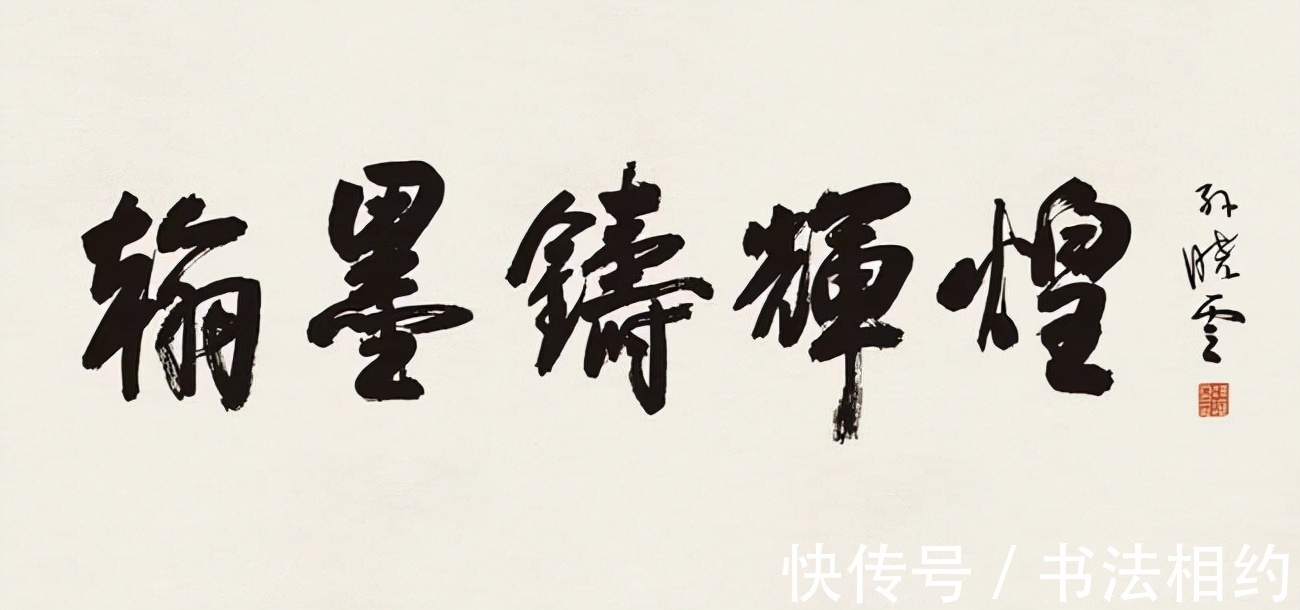 翰墨鑄輝煌
孙晓云
快传号 / 书法相约